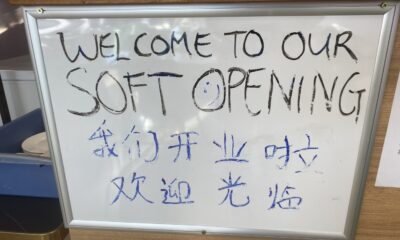 WELCOME TO OUR
SOFT OPENING
我们开业啦
欢迎光临